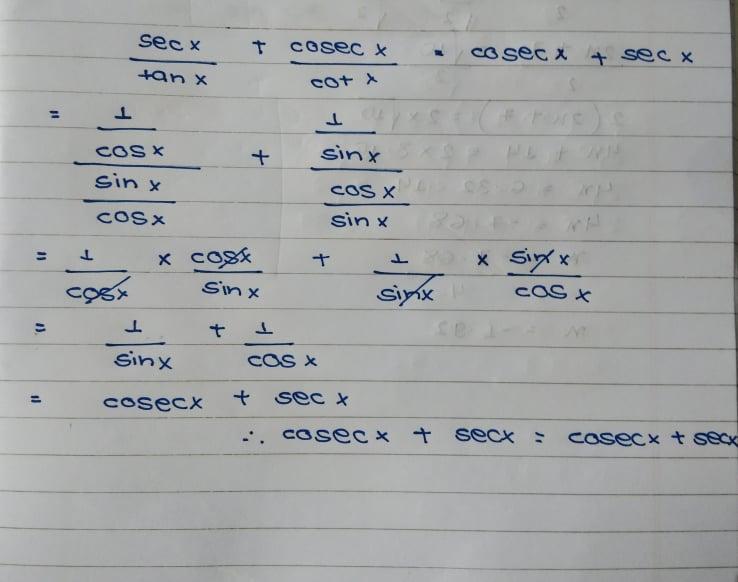 sec x / tan x + cosec x / cot x = cosec x + sec x
= (1 / cos x) / (sin x / cos x) + (1 / sin x) / (cos x / sin x)
= 1 / cos x × cos x / sin x + 1 / sin x × sin x / cos x
= 1 / sin x + 1 / cos x
= cosec x + sec x
∴ cosec x + sec x = cosec x + sec x